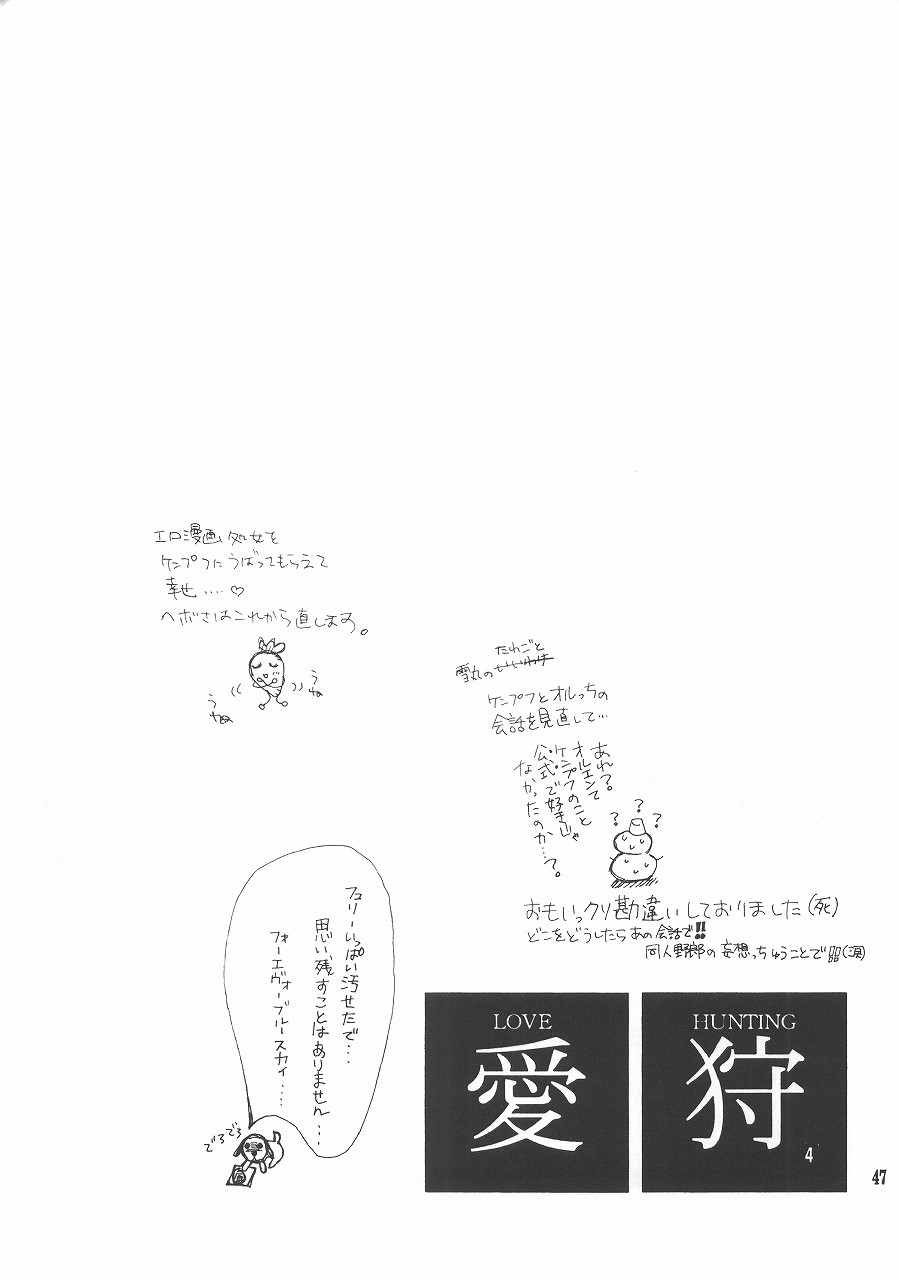 エロ漫画処女を
ケンプフにうばってもらえて
幸せ....♡
ヘボさはこれから直します。
うね
うねぬ
たわごと
雪丸のいいわけ
ケンプフとオルっちの
会話を見直して…
あれ?
オルエンて
ケンプフのこと
公式で好きじゃ
なかったのか…?。
? ? ?
おもいっクソ勘違いしておりました(死)
どこをどうしたらあの会話で!!
同人野郎の妄想っちゅうことで(涙)
フュリーいっぱい汚せたで…
思い残すことはありません…
フォーエヴァーブルースカイ....
でろでろ
LOVE
愛
HUNTING
狩
4
47